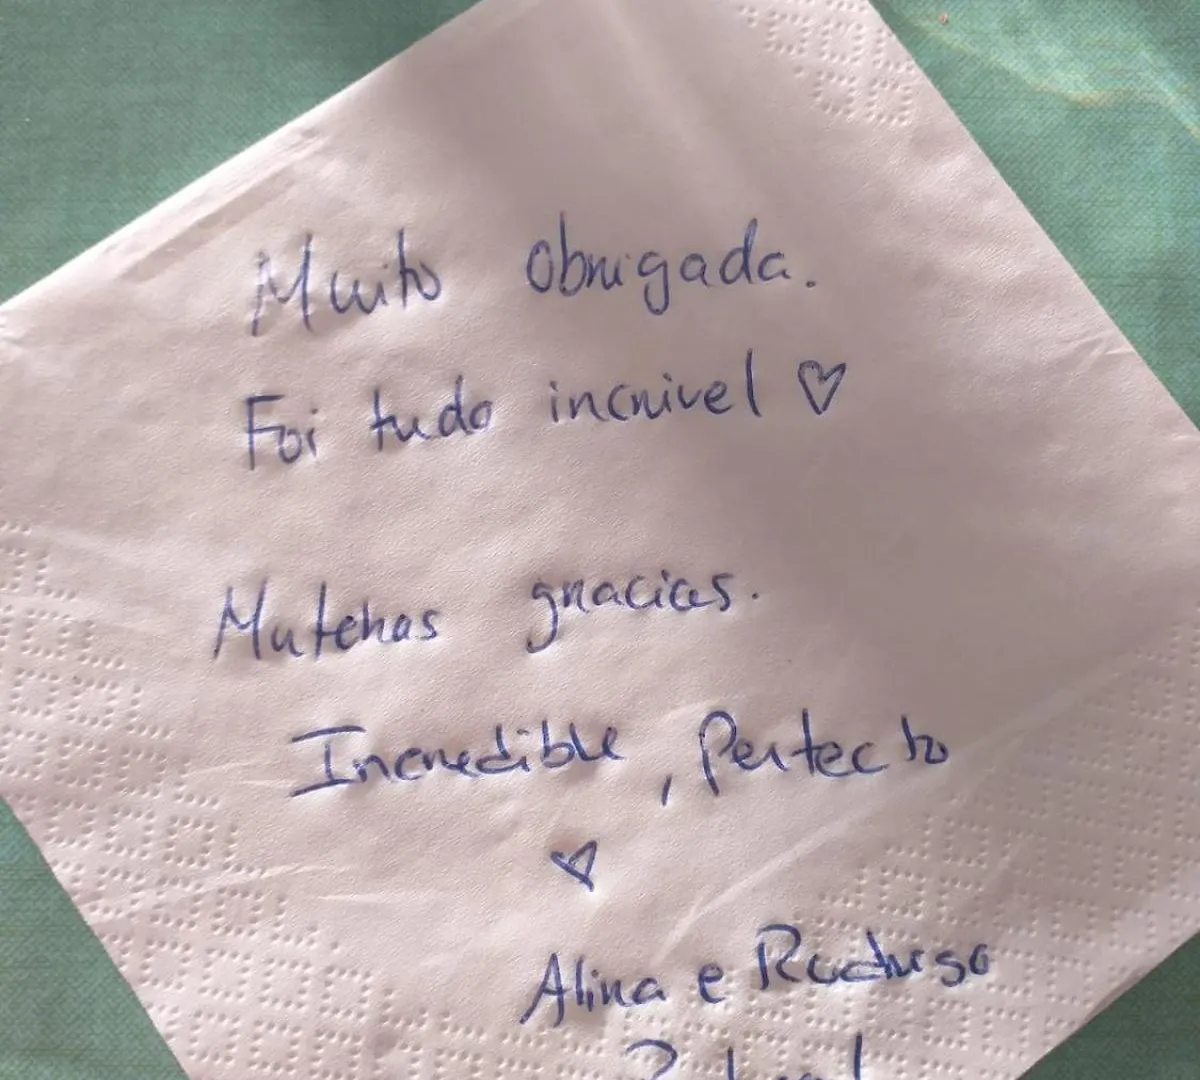 Muito Obrigada.
Foi tudo incrivel ♡
Mutchas gracias.
Incredible, Perfecto
♡
Alina e Rodrigo